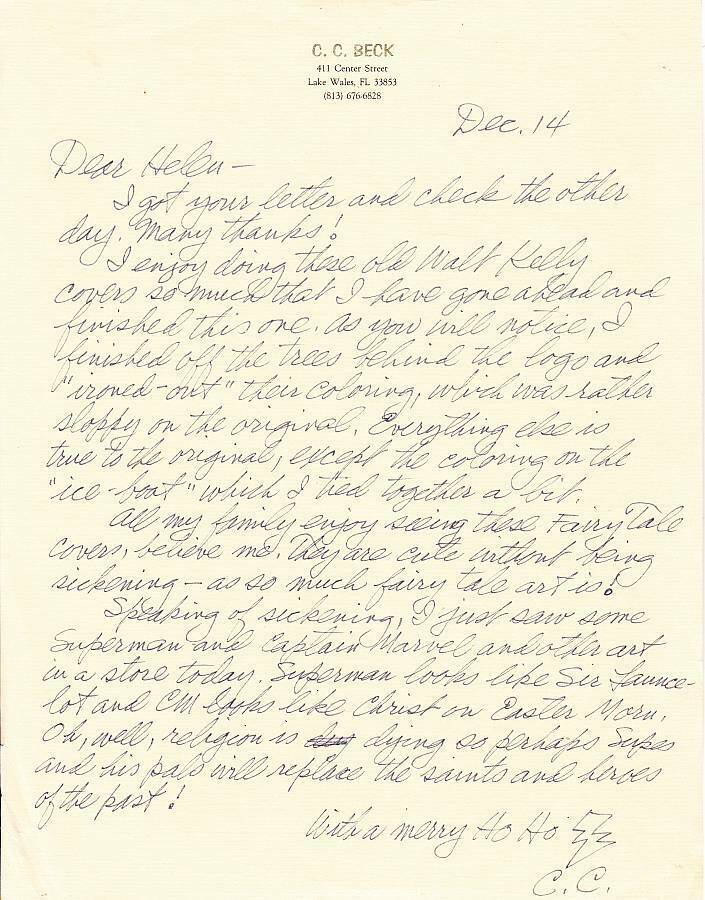 C. C. BECK
411 Center Street
Lake Wales, FL 33853
(813) 676-6828
Dec. 14
Dear Helen—
I got your letter and check the other
day. Many thanks!
I enjoy doing these old Walt Kelly
covers so much that I have gone ahead and
finished this one. As you will notice, I
finished off the trees behind the logo and
"ironed-out" their coloring, which was rather
sloppy on the original. Everything else is
true to the original, except the coloring on the
"ice-boat" which I tied together a bit.
All my family enjoy seeing these Fairy Tale
covers, believe me. They are cute without being
sickening—as so much fairy tale art is!
Speaking of sickening, I just saw some
Superman and Captain Marvel and other art
in a store today. Superman looks like Sir Launce-
lot and CM looks like Christ on Easter Morn.
Oh, well, religion is dying so perhaps Supes
and his pals will replace the saints and heroes
of the past!
With a merry Ho Ho
C.C.